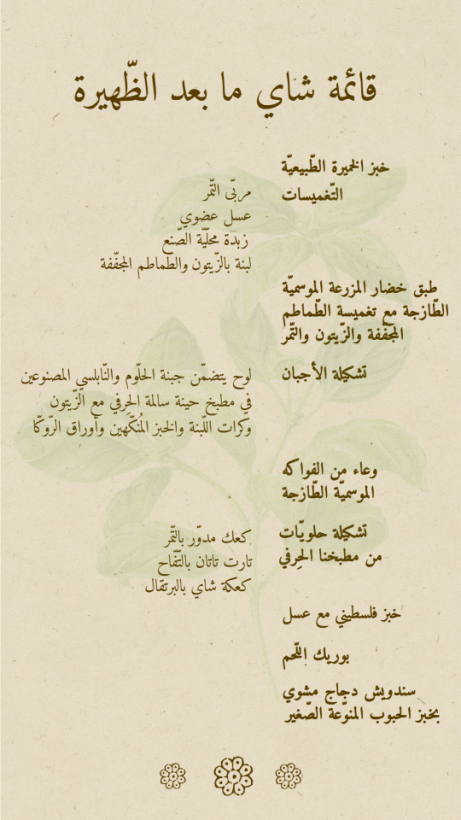 قائمة شاي ما بعد الظّهيرة
خبز الخميرة الطّبيعيّة
التّغميسات
مربّى التّمر
عسل عضوي
زبدة محلّيّة الصّنع
لبنة بالزّيتون والطّماطم المجفّفة
طبق خضار المزرعة الموسميّة
الطّازجة مع تغميسة الطّماطم
المجفّفة والزّيتون والتّمر
تشكيلة الأجبان
لوح يتضمّن جبنة الحلّوم والنّابلسي المصنوعين
في مطبخ حينة سالمة الحِرفي مع الزّيتون
وكرات اللّبنة والخبز المُنكّهين وأوراق الرّوكّا
وعاء من الفواكه
الموسميّة الطّازجة
تشكيلة حلويّات
من مطبخنا الحِرفي
كعك مدوّر بالتّمر
تارت تاتان بالتّفّاح
كعكة شاي بالبرتقال
خبز فلسطيني مع عسل
بوريك اللّحم
سندويش دجاج مشوي
بخبز الحبوب المنوّعة الصّغير